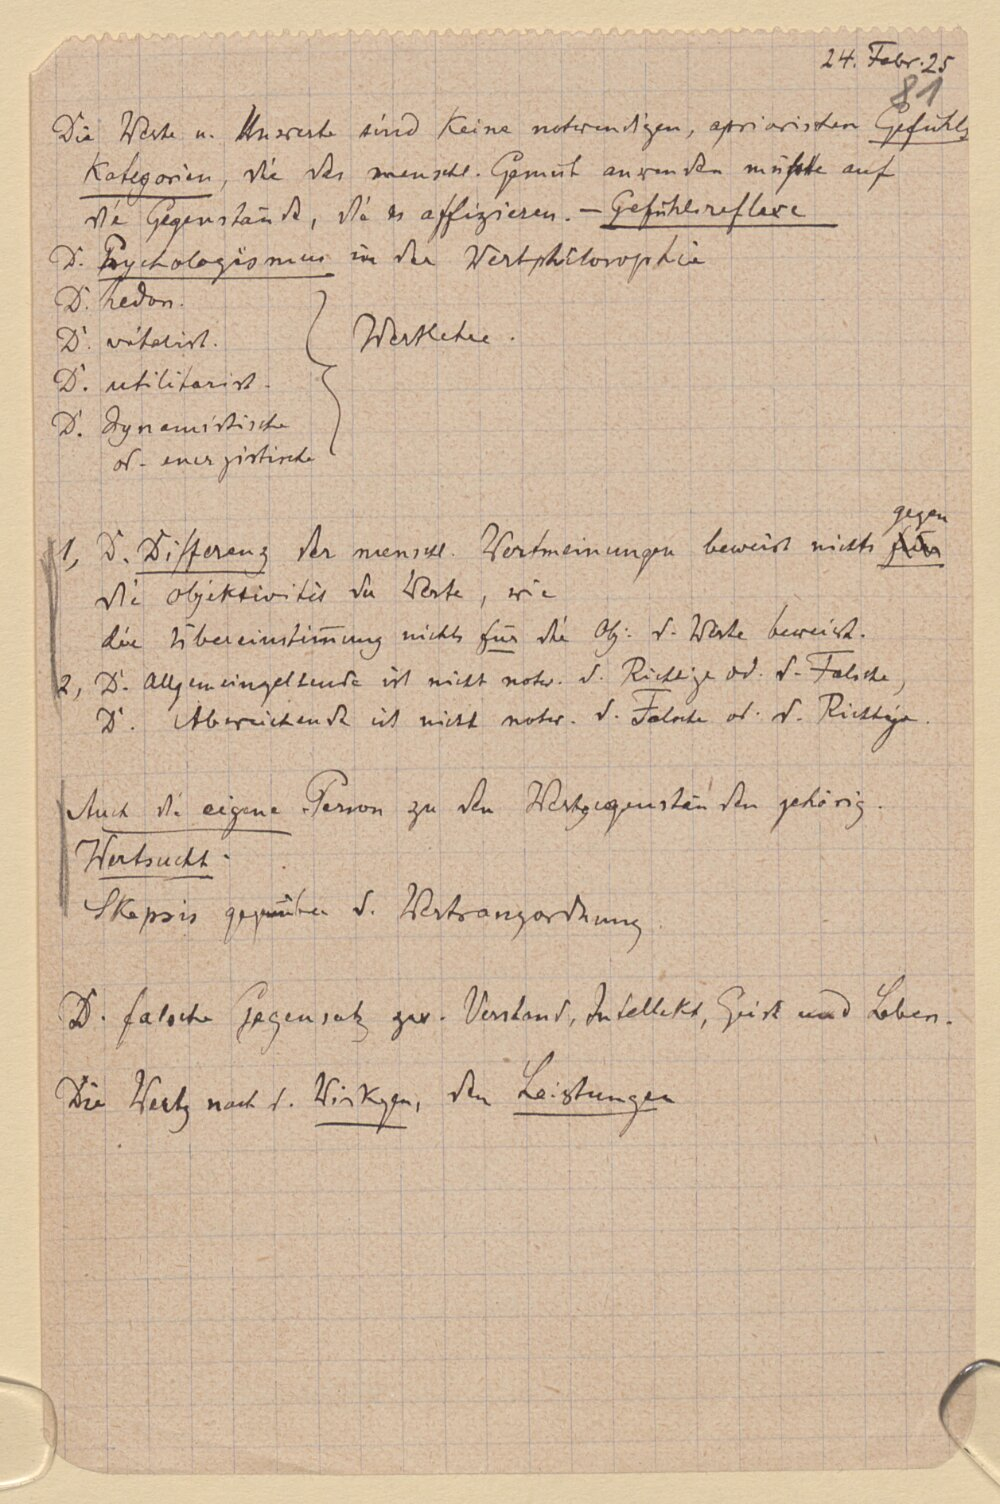 24. Febr. 25
81
Die Werte u. Unwerte sind keine notwendigen, apriorischen Gefühls
kategorien, die das menschl. Gemüt anwenden müßte auf
die Gegenstände, die es affizieren. – Gefühlsreflexe
D. Psychologismus in der Wertphilosophie
D. hedon.
D. vitalist. Wertlehre.
D. utilitarist.
D. dynamistische
od. energistische
gegen
1, D. Differenz der menschl. Wertmeinungen beweist nichts für
die Objektivität der Werte, wie
die Übereinstimmung nichts für die Obj. d. Werte beweist.
2, D. Allgemeingeltende ist nicht notw. d. Richtige od. d. Falsche,
D. Abweichende ist nicht notw. d. Falsche od. d. Richtige.
Auch die eigene Person zu den Wertgegenständen gehörig.
Wertsucht.
Skepsis gegenüber d. Wertrangordnung
D. falsche Gegensatz zw. Verstand, Intellekt, Geist und Leben.
Die Wertg nach d. Wirkgen, den Leistungen